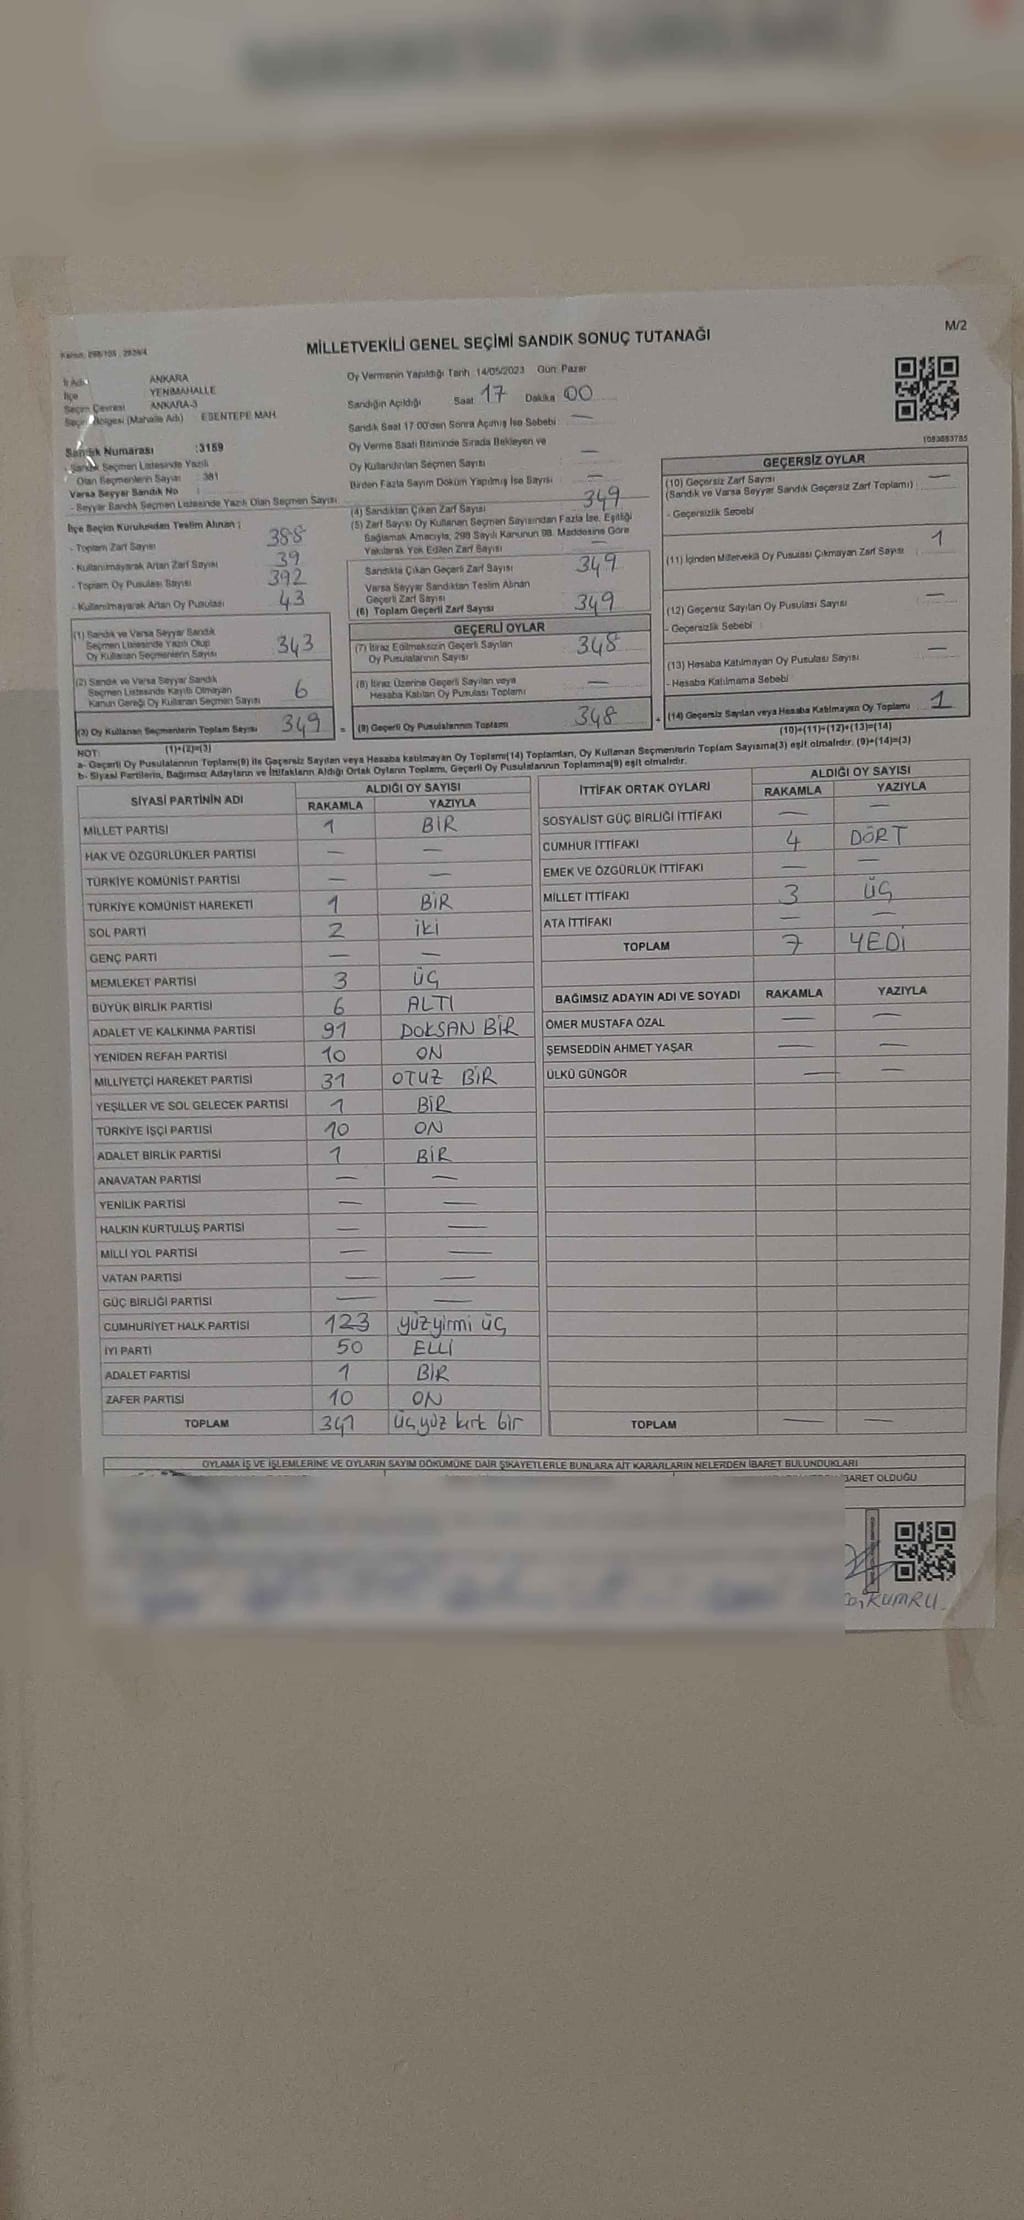 M/2
MİLLETVEKİLİ GENEL SEÇİMİ SANDIK SONUÇ TUTANAĞI
İl Adı ANKARA
İlçe YENİMAHALLE
Seçim Çevresi ANKARA-3
Seçim Bölgesi (Mahalle Adı) ESENTEPE MAH.
Sandık Numarası :3159
- Sandık Seçmen Listesinde Yazılı
Olan Seçmenlerin Sayısı : 381
Varsa Seyyar Sandık No :
- Seyyar Sandık Seçmen Listesinde Yazılı Olan Seçmen Sayısı
Oy Vermenin Yapıldığı Tarih 14/05/2023 Gün: Pazar
Sandığın Açıldığı Saat 17 Dakika 00
Sandık Saat 17:00'den Sonra Açılmış İse Sebebi : —
Oy Verme Saati Bitiminde Sırada Bekleyen ve
Oy Kullandırılan Seçmen Sayısı : —
Birden Fazla Sayım Döküm Yapılmış İse Sayısı : —
İlçe Seçim Kurulundan Teslim Alınan ;
- Toplam Zarf Sayısı : 388
- Kullanılmayarak Artan Zarf Sayısı : 39
- Toplam Oy Pusulası Sayısı : 392
- Kullanılmayarak Artan Oy Pusulası : 43
(1) Sandık ve Varsa Seyyar Sandık
Seçmen Listesinde Yazılı Olup
Oy Kullanan Seçmenlerin Sayısı : 343
(2) Sandık ve Varsa Seyyar Sandık
Seçmen Listesinde Kayıtlı Olmayan
Kanun Gereği Oy Kullanan Seçmen Sayısı : 6
(3) Oy Kullanan Seçmenlerin Toplam Sayısı : 349 =
(1)+(2)=(3)
(4) Sandıktan Çıkan Zarf Sayısı : 349
(5) Zarf Sayısı Oy Kullanan Seçmen Sayısından Fazla İse, Eşitliği
Sağlamak Amacıyla, 298 Sayılı Kanunun 98. Maddesine Göre
Yakılarak Yok Edilen Zarf Sayısı : —
Sandıkta Çıkan Geçerli Zarf Sayısı : 349
Varsa Seyyar Sandıktan Teslim Alınan
Geçerli Zarf Sayısı
(6) Toplam Geçerli Zarf Sayısı : 349
GEÇERLİ OYLAR
(7) İtiraz Edilmeksizin Geçerli Sayılan
Oy Pusulalarının Sayısı : 348
(8) İtiraz Üzerine Geçerli Sayılan veya
Hesaba Katılan Oy Pusulası Toplamı : —
(9) Geçerli Oy Pusulalarının Toplamı : 348 +
1083893785
GEÇERSİZ OYLAR
(10) Geçersiz Zarf Sayısı
(Sandık ve Varsa Seyyar Sandık Geçersiz Zarf Toplamı) : —
- Geçersizlik Sebebi
(11) İçinden Milletvekili Oy Pusulası Çıkmayan Zarf Sayısı : 1
(12) Geçersiz Sayılan Oy Pusulası Sayısı : —
- Geçersizlik Sebebi :
(13) Hesaba Katılmayan Oy Pusulası Sayısı : —
- Hesaba Katılmama Sebebi
(14) Geçersiz Sayılan veya Hesaba Katılmayan Oy Toplamı : 1
(10)+(11)+(12)+(13)=(14)
NOT:
a- Geçerli Oy Pusulalarının Toplamı(9) ile Geçersiz Sayılan veya Hesaba katılmayan Oy Toplamı(14) Toplamları, Oy Kullanan Seçmenlerin Toplam Sayısına(3) eşit olmalıdır. (9)+(14)=(3)
b- Siyasi Partilerin, Bağımsız Adayların ve İttifakların Aldığı Ortak Oyların Toplamı, Geçerli Oy Pusulalarının Toplamına(9) eşit olmalıdır.
SİYASİ PARTİNİN ADI ALDIĞI OY SAYISI
RAKAMLA YAZIYLA
MİLLET PARTİSİ 1 BİR
HAK VE ÖZGÜRLÜKLER PARTİSİ — —
TÜRKİYE KOMÜNİST PARTİSİ — —
TÜRKİYE KOMÜNİST HAREKETİ 1 BİR
SOL PARTİ 2 iki
GENÇ PARTİ — —
MEMLEKET PARTİSİ 3 ÜÇ
BÜYÜK BİRLİK PARTİSİ 6 ALTI
ADALET VE KALKINMA PARTİSİ 91 DOKSAN BİR
YENİDEN REFAH PARTİSİ 10 ON
MİLLİYETÇİ HAREKET PARTİSİ 31 OTUZ BİR
YEŞİLLER VE SOL GELECEK PARTİSİ 1 BİR
TÜRKİYE İŞÇİ PARTİSİ 10 ON
ADALET BİRLİK PARTİSİ 1 BİR
ANAVATAN PARTİSİ — —
YENİLİK PARTİSİ — —
HALKIN KURTULUŞ PARTİSİ — —
MİLLİ YOL PARTİSİ — —
VATAN PARTİSİ — —
GÜÇ BİRLİĞİ PARTİSİ — —
CUMHURİYET HALK PARTİSİ 123 yüzyirmi üç
İYİ PARTİ 50 ELLİ
ADALET PARTİSİ 1 BİR
ZAFER PARTİSİ 10 ON
TOPLAM 341 üçyüz kırk bir
İTTİFAK ORTAK OYLARI ALDIĞI OY SAYISI
RAKAMLA YAZIYLA
SOSYALİST GÜÇ BİRLİĞİ İTTİFAKI — —
CUMHUR İTTİFAKI 4 DÖRT
EMEK VE ÖZGÜRLÜK İTTİFAKI — —
MİLLET İTTİFAKI 3 ÜÇ
ATA İTTİFAKI — —
TOPLAM 7 YEDİ
BAĞIMSIZ ADAYIN ADI VE SOYADI RAKAMLA YAZIYLA
ÖMER MUSTAFA ÖZAL — —
ŞEMSEDDİN AHMET YAŞAR — —
ÜLKÜ GÜNGÖR — —
TOPLAM — —
OYLAMA İŞ VE İŞLEMLERİNE VE OYLARIN SAYIM DÖKÜMÜNE DAİR ŞİKAYETLERLE BUNLARA AİT KARARLARIN NELERDEN İBARET BULUNDUKLARI
İBARET OLDUĞU
KUMRU